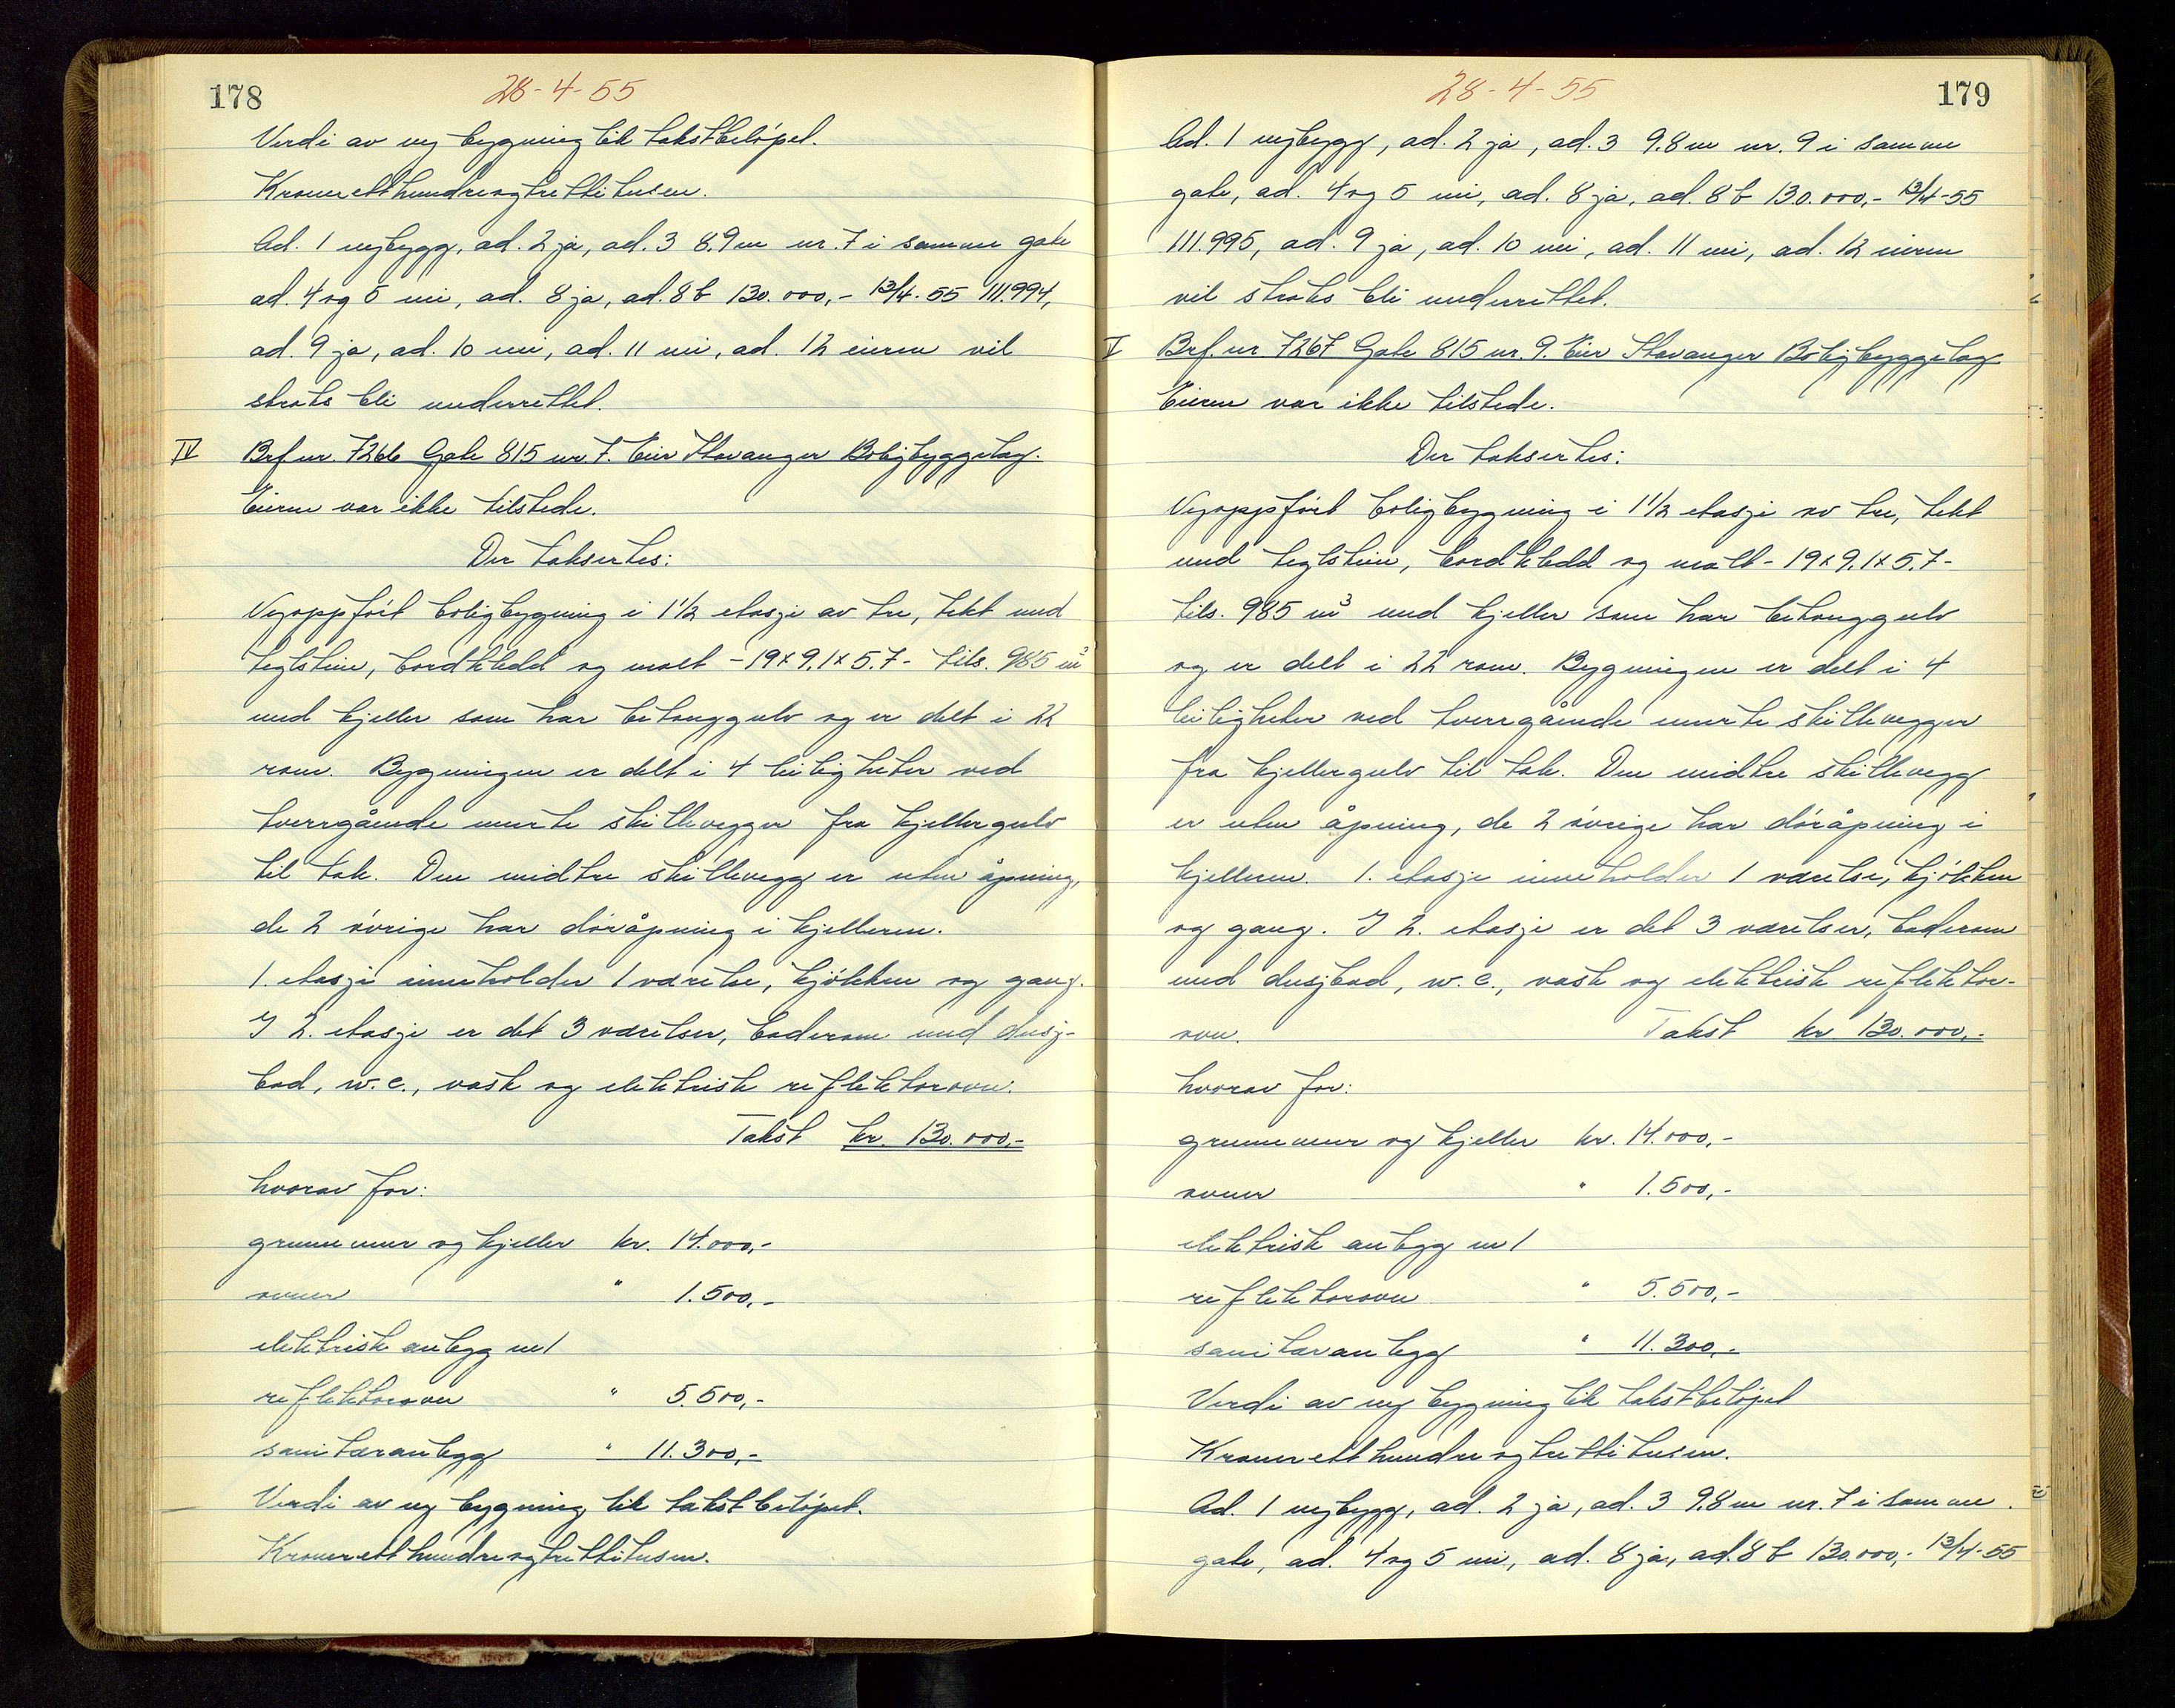 178
28-4-55
Verdi av ny bygning lik takstbeløpet.
Kroneretthundreogtrettitusen.
Ad. 1 nybygg, ad. 2 ja, ad. 3 8.9 m nr. 7 i samme gate
ad. 4 og 5 nei, ad. 8 ja, ad. 8 b 130.000,- 13/4-55 111.994,
ad. 9 ja, ad. 10 nei, ad. 11 nei, ad. 12 eieren vil
straks bli underrettet.
IV Brf. nr. 7266 Gate 815 nr. 7. Eier Stavanger Boligbyggelag.
Eieren var ikke tilstede.
Der taksertes:
Nyoppført boligbygning i 1 1/2 etasje av tre, tekt med
teglstein, bordkledd og malt - 19 x 9.1 x 5.7 - tils. 985 m³
med kjeller som har betonggulv og er delt i 22
rom. Bygningen er delt i 4 leiligheter ved
tverrgående murte skillevegger fra kjellergulv
til tak. Den midtre skillevegg er uten åpning,
de 2 øvrige har døråpning i kjelleren.
1. etasje inneholder 1 værelse, kjøkken og gang.
I 2. etasje er det 3 værelser, baderom med dusj-
bad, w.c., vask og elektrisk reflektorovn.
Takst kr. 130.000,-
hvorav for:
grunnmur og kjeller kr. 14.000,-
ovner " 1.500,-
elektrisk anlegg m/
reflektorovn " 5.500,-
sanitæranlegg " 11.300,-
Verdi av ny bygning lik takstbeløpet.
Kroneretthundreogtrettitusen.
179
28-4-55
Ad. 1 nybygg, ad. 2 ja, ad. 3 9.8 m nr. 9 i samme
gate, ad. 4 og 5 nei, ad. 8 ja, ad. 8 b 130.000,- 13/4-55
111.995, ad. 9 ja, ad. 10 nei, ad. 11 nei, ad. 12 eieren
vil straks bli underrettet.
V Brf. nr 7267 Gate 815 nr. 9. Eier Stavanger Boligbyggelag
Eieren var ikke tilstede.
Der taksertes:
Nyoppført boligbygning i 1 1/2 etasje av tre, tekt
med teglstein, bordkledd og malt - 19 x 9.1 x 5.7 -
tils. 985 m³ med kjeller som har betonggulv
og er delt i 22 rom. Bygningen er delt i 4
leiligheter ved tverrgående murte skillevegger
fra kjellergulv til tak. Den midtre skillevegg
er uten åpning, de 2 øvrige har døråpning i
kjelleren. 1. etasje inneholder 1 værelse, kjøkken
og gang. I 2. etasje er det 3 værelser, baderom
med dusjbad, w.c., vask og elektrisk reflektor-
ovn. Takst kr. 130.000,-
hvorav for:
grunnmur og kjeller kr. 14.000,-
ovner " 1.500,-
elektrisk anlegg m/
reflektorovn " 5.500,-
sanitæranlegg " 11.300,-
Verdi av ny bygning lik takstbeløpet
Kroneretthundreogtrettitusen.
Ad. 1 nybygg, ad. 2 ja, ad. 3 9.8 m nr. 7 i samme
gate, ad. 4 og 5 nei, ad. 8 ja, ad. 8 b 130.000,- 13/4-55